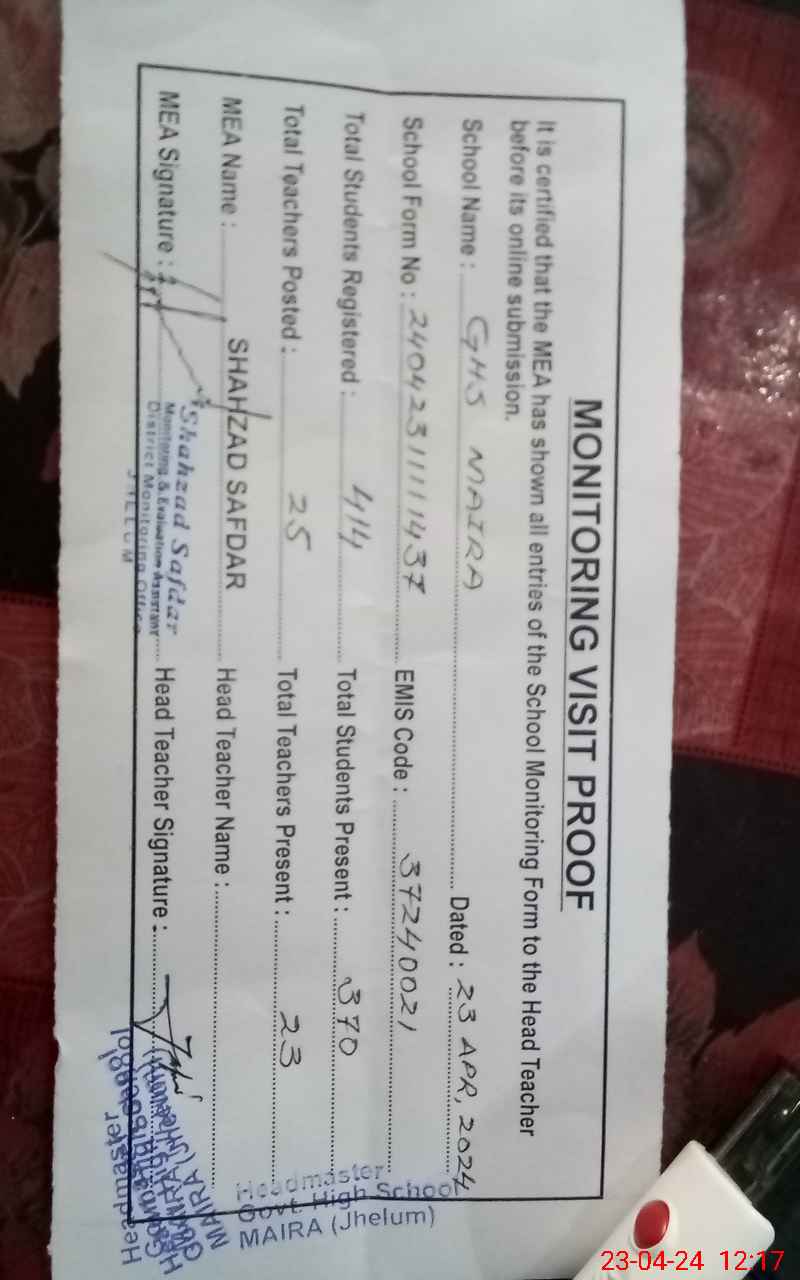 MONITORING VISIT PROOF
It is certified that the MEA has shown all entries of the School Monitoring Form to the Head Teacher
before its online submission.
School Name : GHS MAIRA Dated : 23 APR, 2024
School Form No : 24042311111437 EMIS Code : 37240021
Total Students Registered : 414 Total Students Present : 370
Total Teachers Posted : 25 Total Teachers Present : 23
MEA Name : SHAHZAD SAFDAR Head Teacher Name :
MEA Signature : Head Teacher Signature :
Shahzad Safdar
Monitoring & Evaluation Assistant
District Monitoring Office
JHELUM
Headmaster
Govt. High School
MAIRA (Jhelum)
Headmaster
MAIRA (Jhelum)
23-04-24 12:17